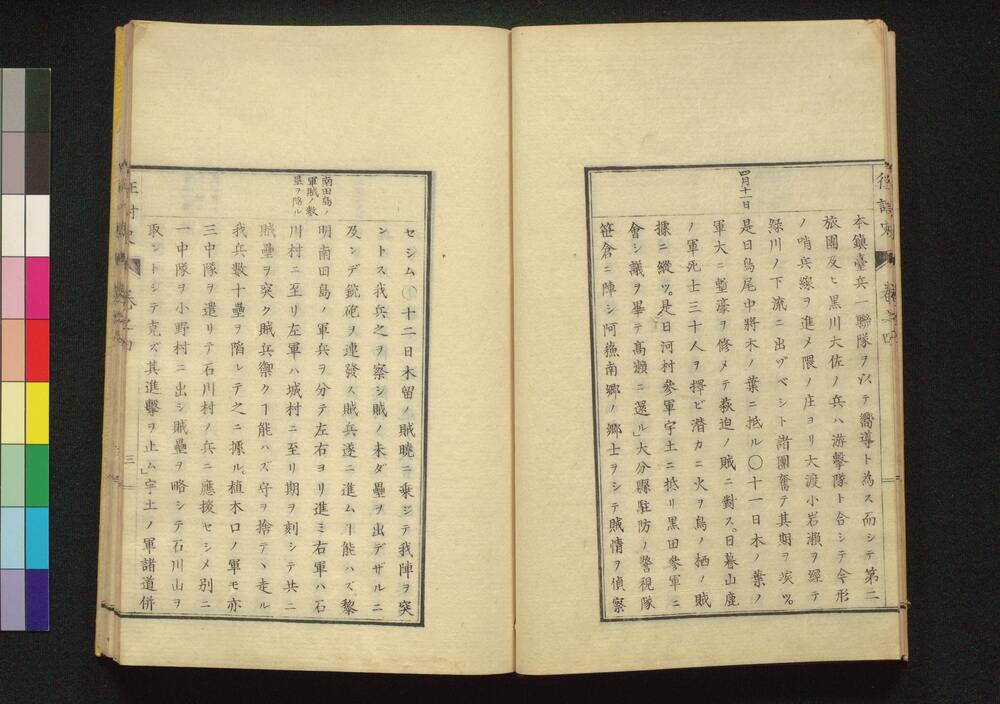 四月十一日
本鎮臺兵一聯隊ヲ以テ嚮導ト為ス而シテ第二
旅團及ヒ黒川大佐ノ兵ハ游擊隊ト合シテ令形
ノ哨兵線ヲ進メ隈ノ庄ヨリ大渡小岩瀬ヲ經テ
緑川ノ下流ニ出ヅベシト諸團奮テ其期ヲ竢ツ。
是日鳥尾中將木ノ葉ニ抵ル〇十一日木ノ葉ノ
軍大ニ塹濠ヲ修メテ荻迫ノ賊ニ對ス。日暮山鹿
ノ軍死士三十人ヲ擇ビ潜カニ火ヲ鳥ノ栖ノ賊
據ニ縱ツ。是日河村參軍宇土ニ抵リ黒田參軍ニ
會シ議ヲ畢テ高瀬ニ還ル」大分縣駐防ノ警視隊
笹倉ニ陣シ阿蘓南郷ノ郷士ヲシテ賊情ヲ偵察
南田島ノ
軍賊ノ數
壘ヲ陷ル
セシム〇十二日木留ノ賊曉ニ乗ジテ我陣ヲ突
ントス我兵之ヲ察シ賊ノ未ダ壘ヲ出デザルニ
及ンデ銃砲ヲ連發ス賊兵遂ニ進ムヿ能ハズ黎
明南田島ノ軍兵ヲ分テ左右ヨリ進ミ右軍ハ石
川村ニ至リ左軍ハ城村ニ至リ期ヲ刻シテ共ニ
賊壘ヲ突ク賊兵禦クヿ能ハズ守ヲ捨テヽ走ル
我兵數十壘ヲ陷レテ之ニ據ル。植木口ノ軍モ亦
三中隊ヲ遣リテ石川村ノ兵ニ應援セシメ別ニ
一中隊ヲ小野村ニ出シ賊壘ヲ略シテ石川山ヲ
取ントシテ克ズ其進擊ヲ止ム宇土ノ軍諸道併
卷之四
三